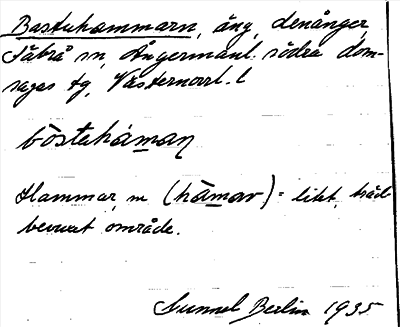 Bastuhammarn, äng, Denånger,
Säbrå sn, Ångermanl. södra dom-
sagas tg, Västernorrl. l
bòstuhàman
Hammar, m (hàmar) = litet, träd-
bevuxet område.
Gunnel Berlin 1935